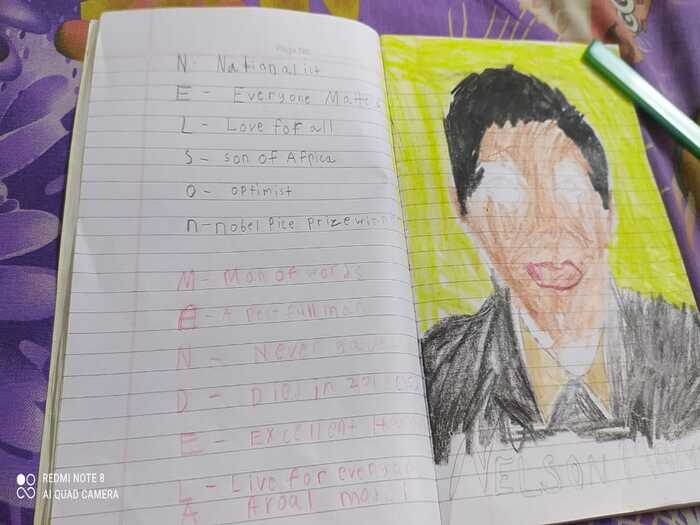 Page No.
N - Nationalist
E - Everyone Matters
L - Love for all
S - son of Africa
O - optimist
n - nobel Pice Prize winn
M - Man of words
A - A Peace full man
N - Never gave
D - Died in 2013
E - Excellent
L - Live for everyon
A Aroal model
NELSON
REDMI NOTE 8
AI QUAD CAMERA